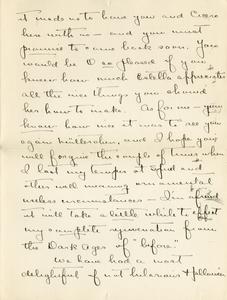 it made us to have you and
here with us — and you must
promise to come back soon. You
would be O so pleased if you
knew how much Estella appreciates
all the nice things you showed
her how to make. As for me — you
know how nice it was to see you
again and I hope you
will forgive the couple of times when
I lost my temper at and
other well meaning ornamental
useless circumstances — I'm afraid
it will take a little while to effect
my complete rejuvenation from
the Dark Ages of "before"
We have had a most
delightful if not hilarious &